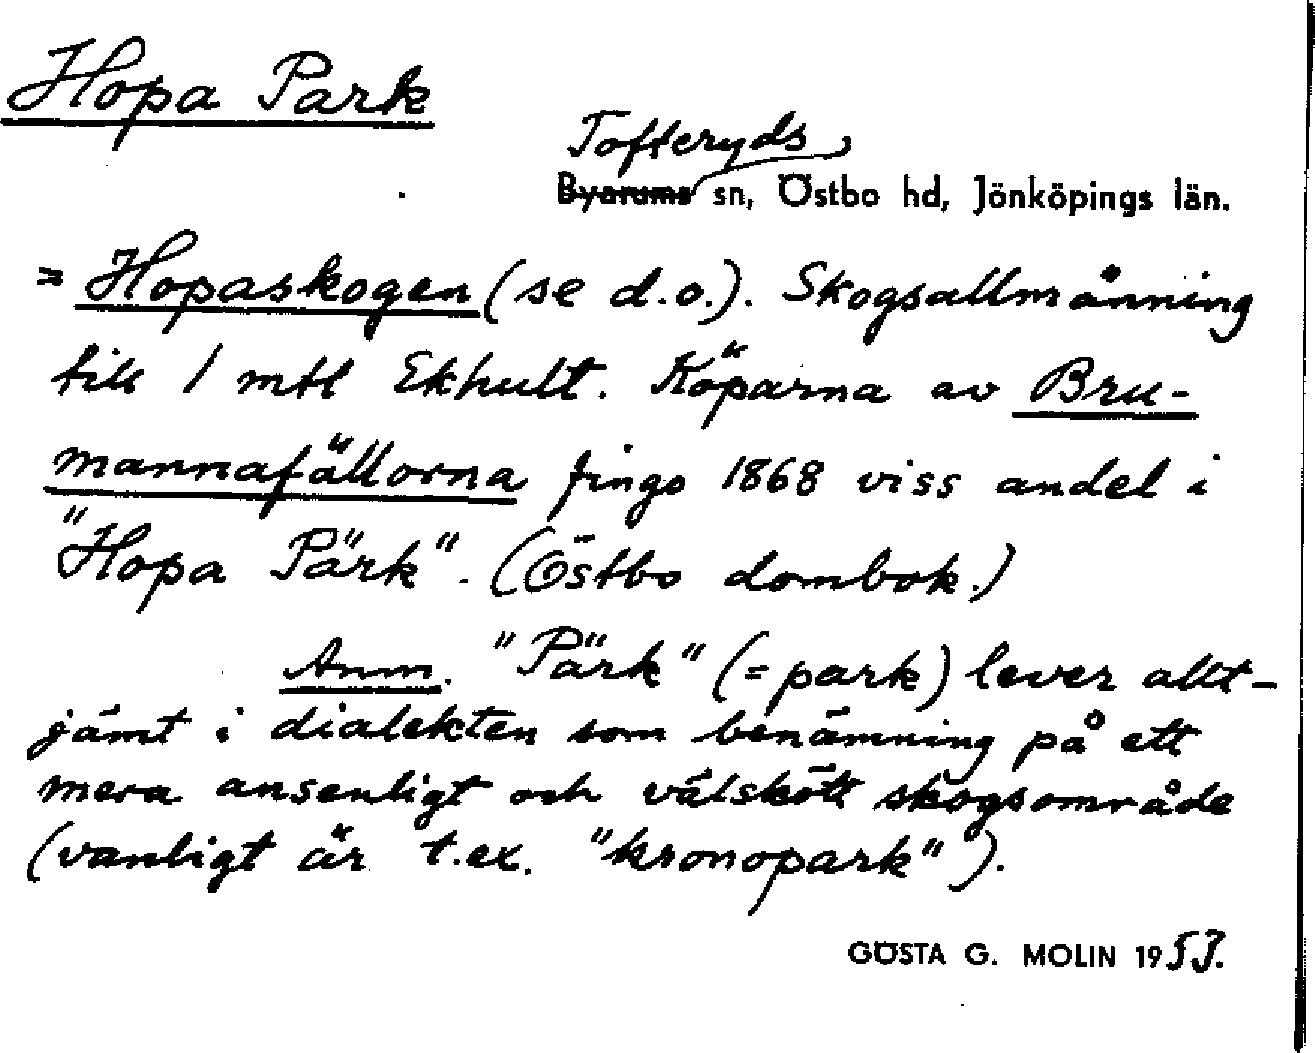 Hopa Park
Tofteryds
Byarums sn, Östbo hd, Jönköpings län.
= Hopaskogen (se d.o.). Skogsallmänning
till 1 mtl Ekhult. Köparna av Bru-
mannafällorna fingo 1868 viss andel i
"Hopa Pärk". (Östbo dombok.)
Anm. "Pärk" (= park) lever allt-
jämt i dialekten som benämning på ett
mera ansenligt och välskött skogsområde
(vanligt är t.ex. "kronopark").
GÖSTA G. MOLIN 1953.